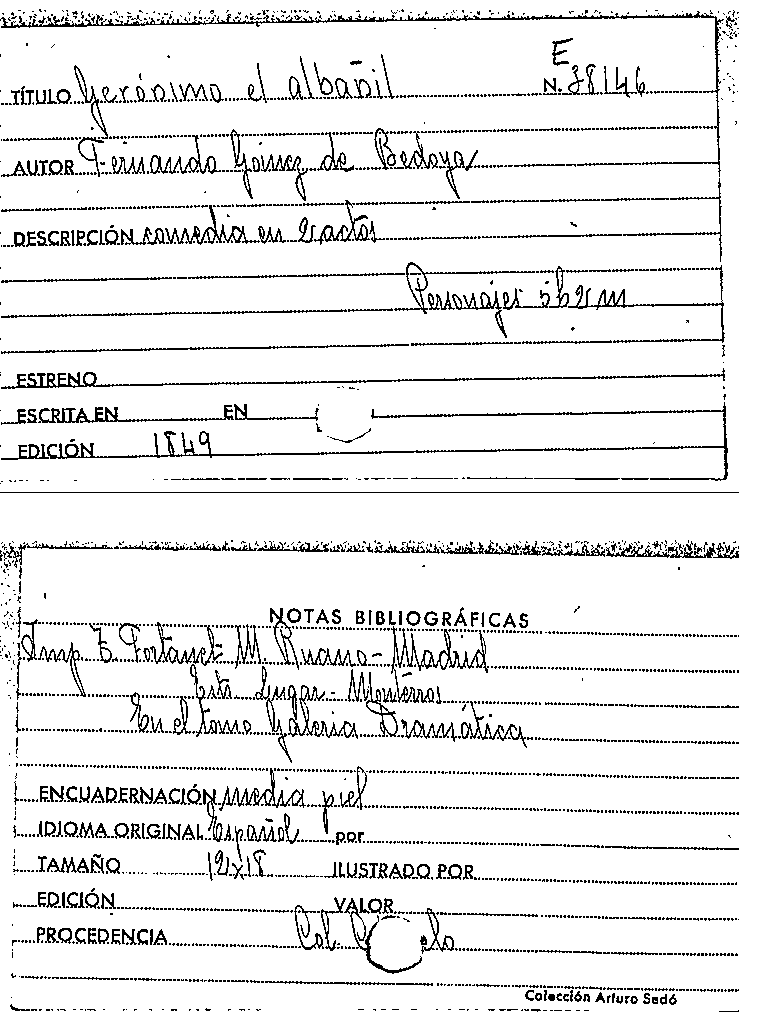 E
TÍTULO Gerónimo el albañil N. 38146
AUTOR Fernando Gómez de Bedoya
DESCRIPCIÓN comedia en 2 actos
Personajes 5h 2 m
ESTRENO
ESCRITA EN EN
EDICIÓN 1849
NOTAS BIBLIOGRÁFICAS
Imp Fortanet M. Ruano - Madrid
Lugar - Monteros
En el tomo Galeria Dramática
ENCUADERNACIÓN media piel
IDIOMA ORIGINAL Español por
TAMAÑO 12x18 ILUSTRADO POR
EDICIÓN VALOR
PROCEDENCIA Col.
Colección Arturo Sedó